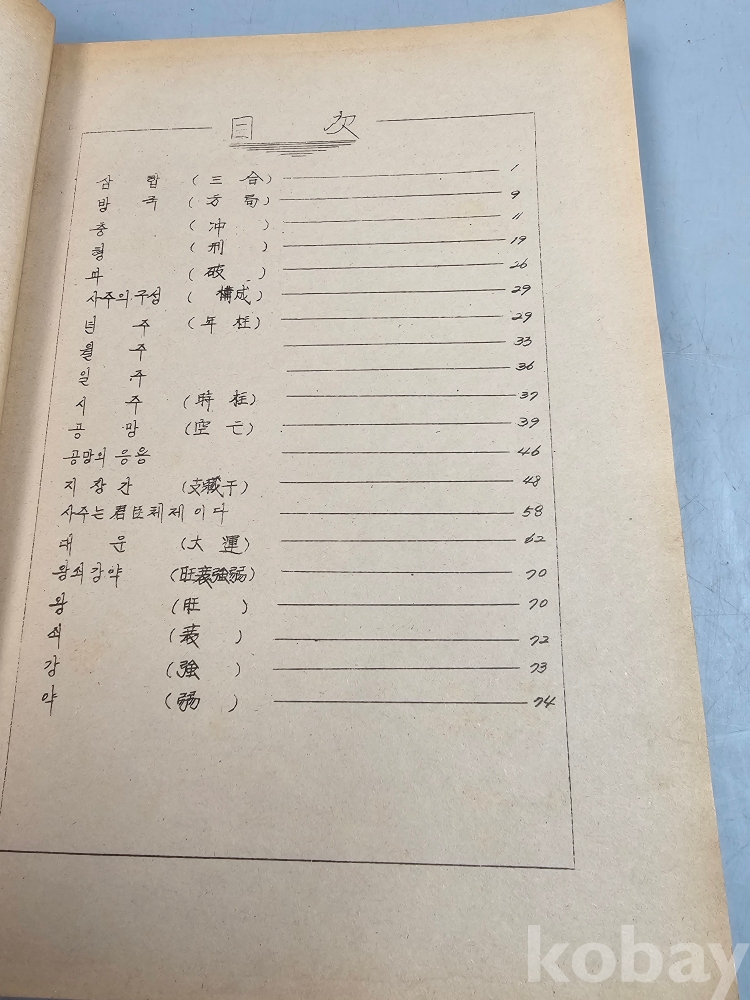 目 次
삼 합 (三 合) 1
방 국 (方 局) 9
충 (冲 ) 11
형 (刑 ) 19
파 (破 ) 26
사주의 구성 ( 構成) 29
년 주 (年 柱) 29
월 주 33
일 주 36
시 주 (時 柱) 37
공 망 (空 亡) 39
공망의 응용 46
지 장 간 (支藏干) 48
사주는 君臣체제이다 58
대 운 (大 運) 62
왕쇠강약 (旺衰強弱) 70
왕 (旺 ) 70
쇠 (衰 ) 72
강 (強 ) 73
약 (弱 ) 74
kobay